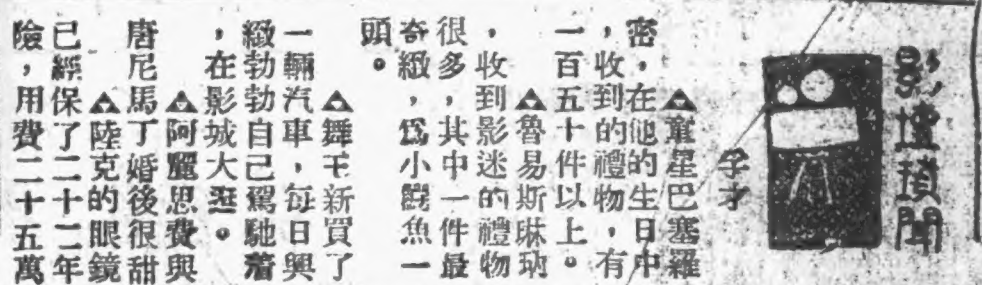 影壇瑣聞
孚才
▲童星巴塞羅
密,在他的生日中
,收到的禮物,有
一百五十件以上。
▲魯易斯琳
,收到影迷的禮物
很多,其中一件最
奇緻,爲小鱷魚一
頭。
▲舞王新買了
一輛汽車,每日興
緻勃勃自己駕馳着
,在影城大逛。
▲阿麗思費與
唐尼馬丁婚後很甜
▲陸克的眼鏡
已經保了二十二年
險,用費二十五萬